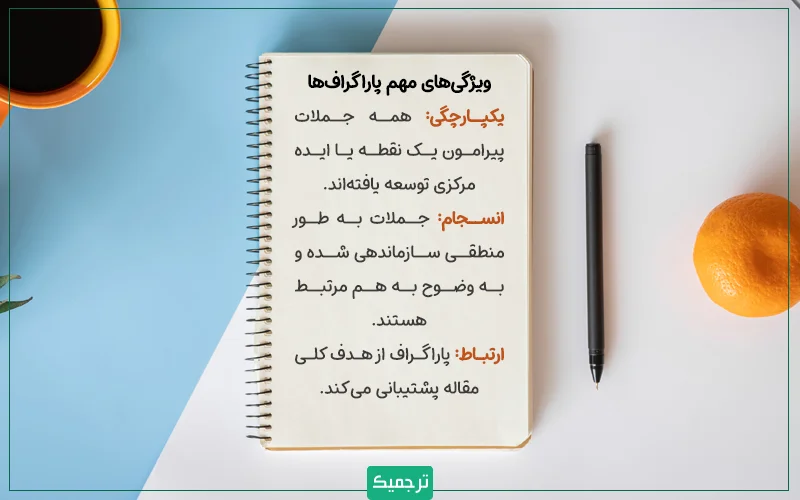 ویژگی‌های مهم پاراگراف‌ها
یکپارچگی: همه جملات
پیرامون یک نقطه یا ایده
مرکزی توسعه یافته‌اند.
انسجام: جملات به طور
منطقی سازماندهی شده و
به وضوح به هم مرتبط
هستند.
ارتباط: پاراگراف از هدف کلی
مقاله پشتیبانی می‌کند.
ترجمیک